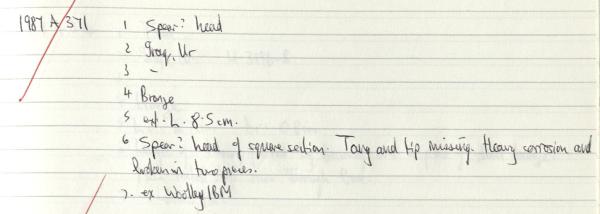 1987 A 371 1 Spear? head
2 Iraq, Ur
3 -
4 Bronze
5 ext. L. 8.5cm.
6 Spear? head of square section. Tang and tip missing. Heavy corrosion and
broken in two pieces.
7. ex Woolley/BM